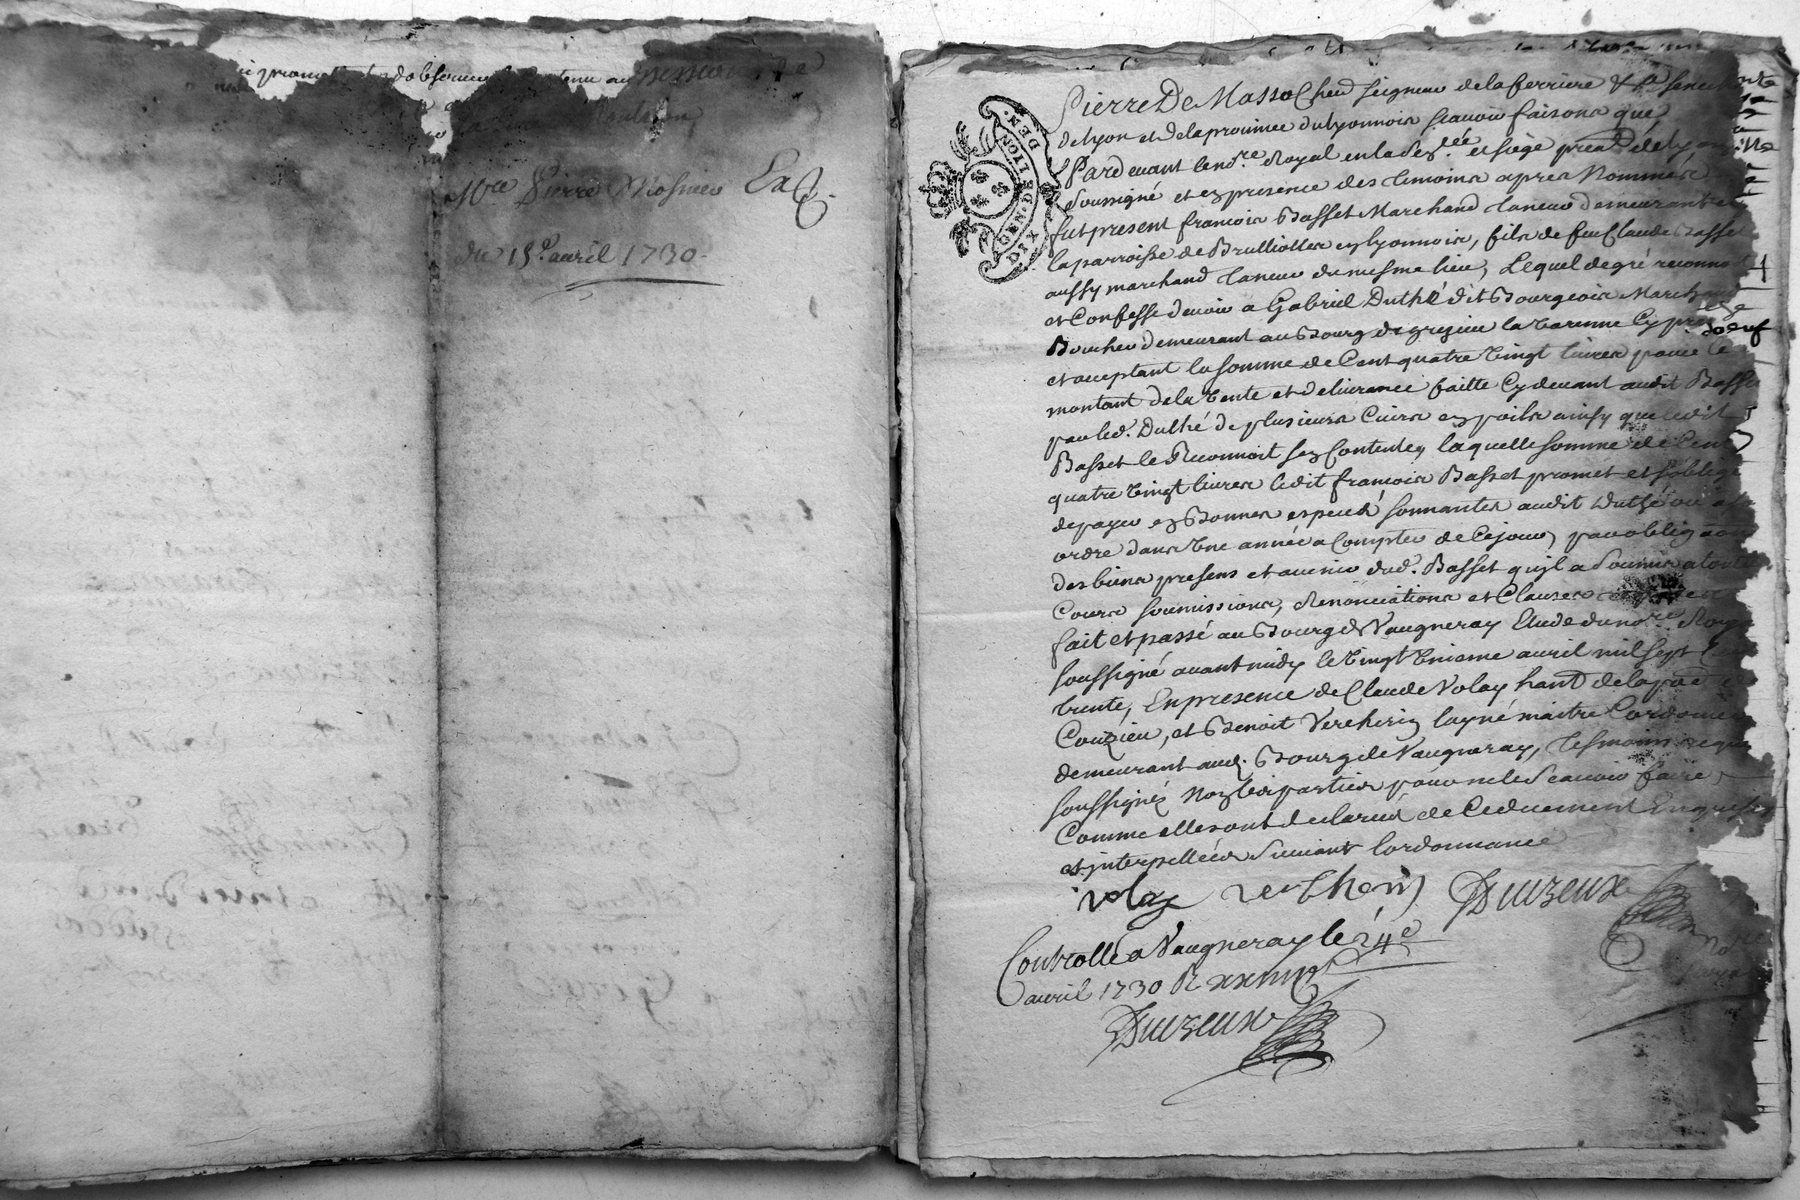 promet d'observer contenu au
Mre Pierre Mosnier
du 15e. avril 1730.
DIX DEN. GEN. DE LION
Pierre De Masso Cheur Seigneur de la ferriere &
de Lyon et de la province du Lyonnois Scavoir faisons que
Pardevant le nore Royal en la Senéée et siège preal de Lyon
Soussigné et en presence des temoins apres Nommés
fut present francois Basset Marchand taneur demeurant en
la parroisse de Brulliolles en lyonnois, fils de feu Claude Basset
aussy marchand taneur du mesme lieu, Lequel de gré reconnoit
et Confesse devoir a Gabriel Duthé dit Bourgeois Marchand
Boucher demeurant au Bourg de grezieu la Varenne Cy present
et acceptant la somme de Cent quatre Vingt livres pour le
montant de la Vente et delivrance faitte Cydevant audit Basset
par led. Duthé de plusieurs Cuirs en poils ainsy que ledit
Basset le Reconnoit s'en Contenter, laquelle somme de Cent
quatre Vingt livres ledit francois Basset promet et s'oblige
de payer en Bonnes especes sonnantes audit Duthé ou a
ordre dans Une année a Compter de Ce jour, par obligaon
des biens presens et avenir dud. Basset qu'il a Soumis a toutes
Cours soumissions, Renonciations et Clauses
fait et passé au Bourg de Vaugneray Etude du nore Royal
soussigné avant midy le Vingt Unieme avril mil sept Cent
trente, En presence de Claude Volay hant de la par
Couzieu, et Benoit Vercherin layné maitre Cordonnier
demeurant aud. Bourg de Vaugneray, tesmoins requis
soussignés Non les parties pour ne le Scavoir faire,
Comme elles ont declarées de Ce duement Enquises
et interpellées Suivant l'ordonnance
Volay Verchery Duvzeux
Controllé a Vaugneray le 24e
avril 1730 R
Duvzeux